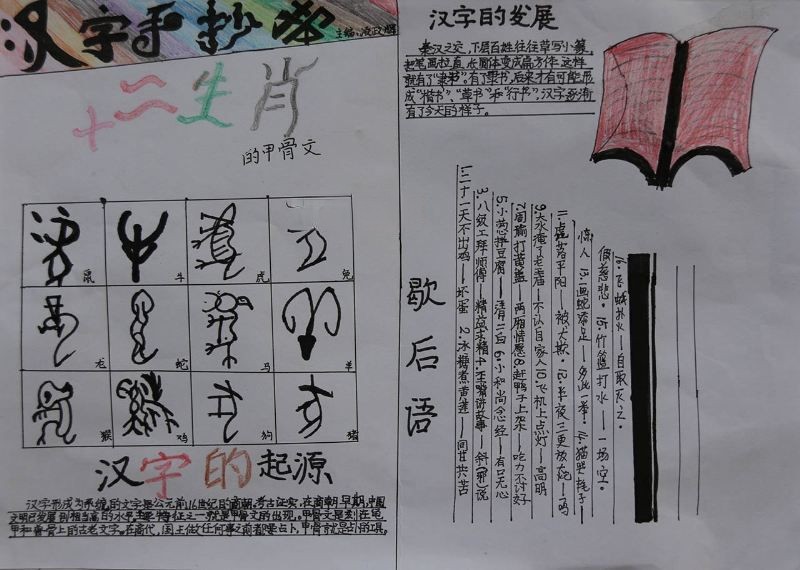 汉字手抄报
主编:凌政
十二生肖
的甲骨文
鼠 牛 虎 兔
龙 蛇 马 羊
猴 鸡 狗 猪
汉字的起源
汉字形成为系统的文字是公元前16世纪的商朝。考古证实,在商朝早期,中国
文明已发展到相当高的水平,主要特征之一就是甲骨文的出现。甲骨文是刻在龟
甲和兽骨上的古老文字。在商代,国王做任何事之前都要占卜,甲骨就是占卜的
汉字的发展
秦汉之交,下层百姓往往草写小篆,
起笔画拉直,长圆体变成扁方体。这样
就有了“隶书”。有了隶书,后来才有可能形
成“楷书”、“草书”和“行书”,汉字逐渐
有了今天的样子。
歇后语
1.二十一天不出鸡——坏蛋 2.冰糖煮黄莲——同甘共苦
3.八级工拜师傅——精益求精 4.歪嘴讲故事——斜(邪)说
5.小葱拌豆腐——清二白 6.小和尚念经——有口无心
7.周瑜打黄盖——两厢情愿 8.赶鸭子上架——吃力不讨好
9.大水淹了龙王庙——不认自家人 10.飞机上点灯——高明
11.虎落平阳——被犬欺。12.半夜三更放炮——一鸣
惊人 13.画蛇添足——多此一举。14.猫哭耗子——
假慈悲。15.竹篮打水——一场空。
16.飞蛾扑火——自取灭亡。